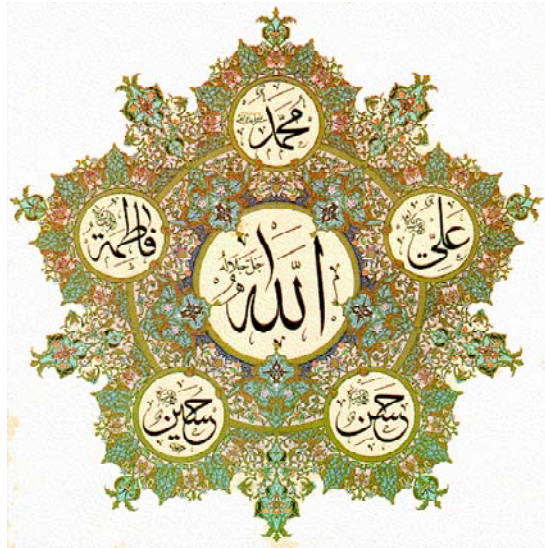 محمد
علي
فاطمة
الله جل جلاله
حسن
حسين